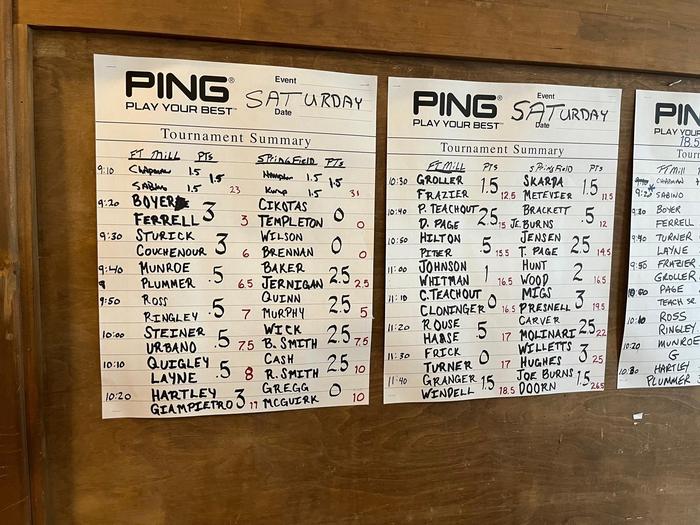 PING®
PLAY YOUR BEST™
Event
SATURDAY
Date
Tournament Summary
FT MILL PTS SPRINGFIELD PTS
9:10 Chapman 1.5 1.5 1.5
SABINO 1.5 23 Kemp 1.5 31
9:20 BOYER 3 CIKOTAS 0
FERRELL 3 TEMPLETON 0
9:30 STURICK 3 WILSON 0
COUCHENOUR 6 BRENNAN 0
9:40 MUNROE .5 BAKER 2.5
PLUMMER 6.5 JERNIGAN 2.5
9:50 ROSS .5 QUINN 2.5
RINGLEY 7 MURPHY 5
10:00 STEINER .5 WICK 2.5
URBANO 7.5 B. SMITH 7.5
10:10 QUIGLEY .5 CASH 2.5
LAYNE 8 R. SMITH 10
10:20 HARTLEY 3 GREGG 0
GIAMPIETRO 11 MCGUIRK 10
PING®
PLAY YOUR BEST™
Event
SATURDAY
Date
Tournament Summary
FT MILL PTS SPRINGFIELD PTS
10:30 GROLLER 1.5 SKARDA 1.5
FRAZIER 12.5 METEVIER 11.5
10:40 P. TEACHOUT 2.5 BRACKETT .5
D. PAGE 15 JE. BURNS 12
10:50 HILTON .5 JENSEN 2.5
15.5 T. PAGE 14.5
11:00 JOHNSON 1 HUNT 2
WHITMAN 16.5 WOOD 16.5
11:10 C. TEACHOUT 0 MIGS 3
CLONINGER 16.5 PRESNELL 19.5
11:20 ROUSE .5 CARVER 2.5
HAASE 17 MOLINARI 22
11:30 FRICK 0 WILLETTS 3
TURNER 17 HUGHES 25
11:40 GRANGER 1.5 JOE BURNS 1.5
WINDELL 18.5 DOORN 26.5
PIN
PLAY YO
18.5
Tour
FT MILL
CHAPMAN
SABINO
9:30 BOYER
FERRELL
9:40 TURNER
LAYNE
9:50 FRAZIER
GROLLER
10:00 PAGE
TEACH SR
10:10 ROSS
RINGLEY
10:20 MUNROE
G
10:30 HARTLEY
PLUMMER